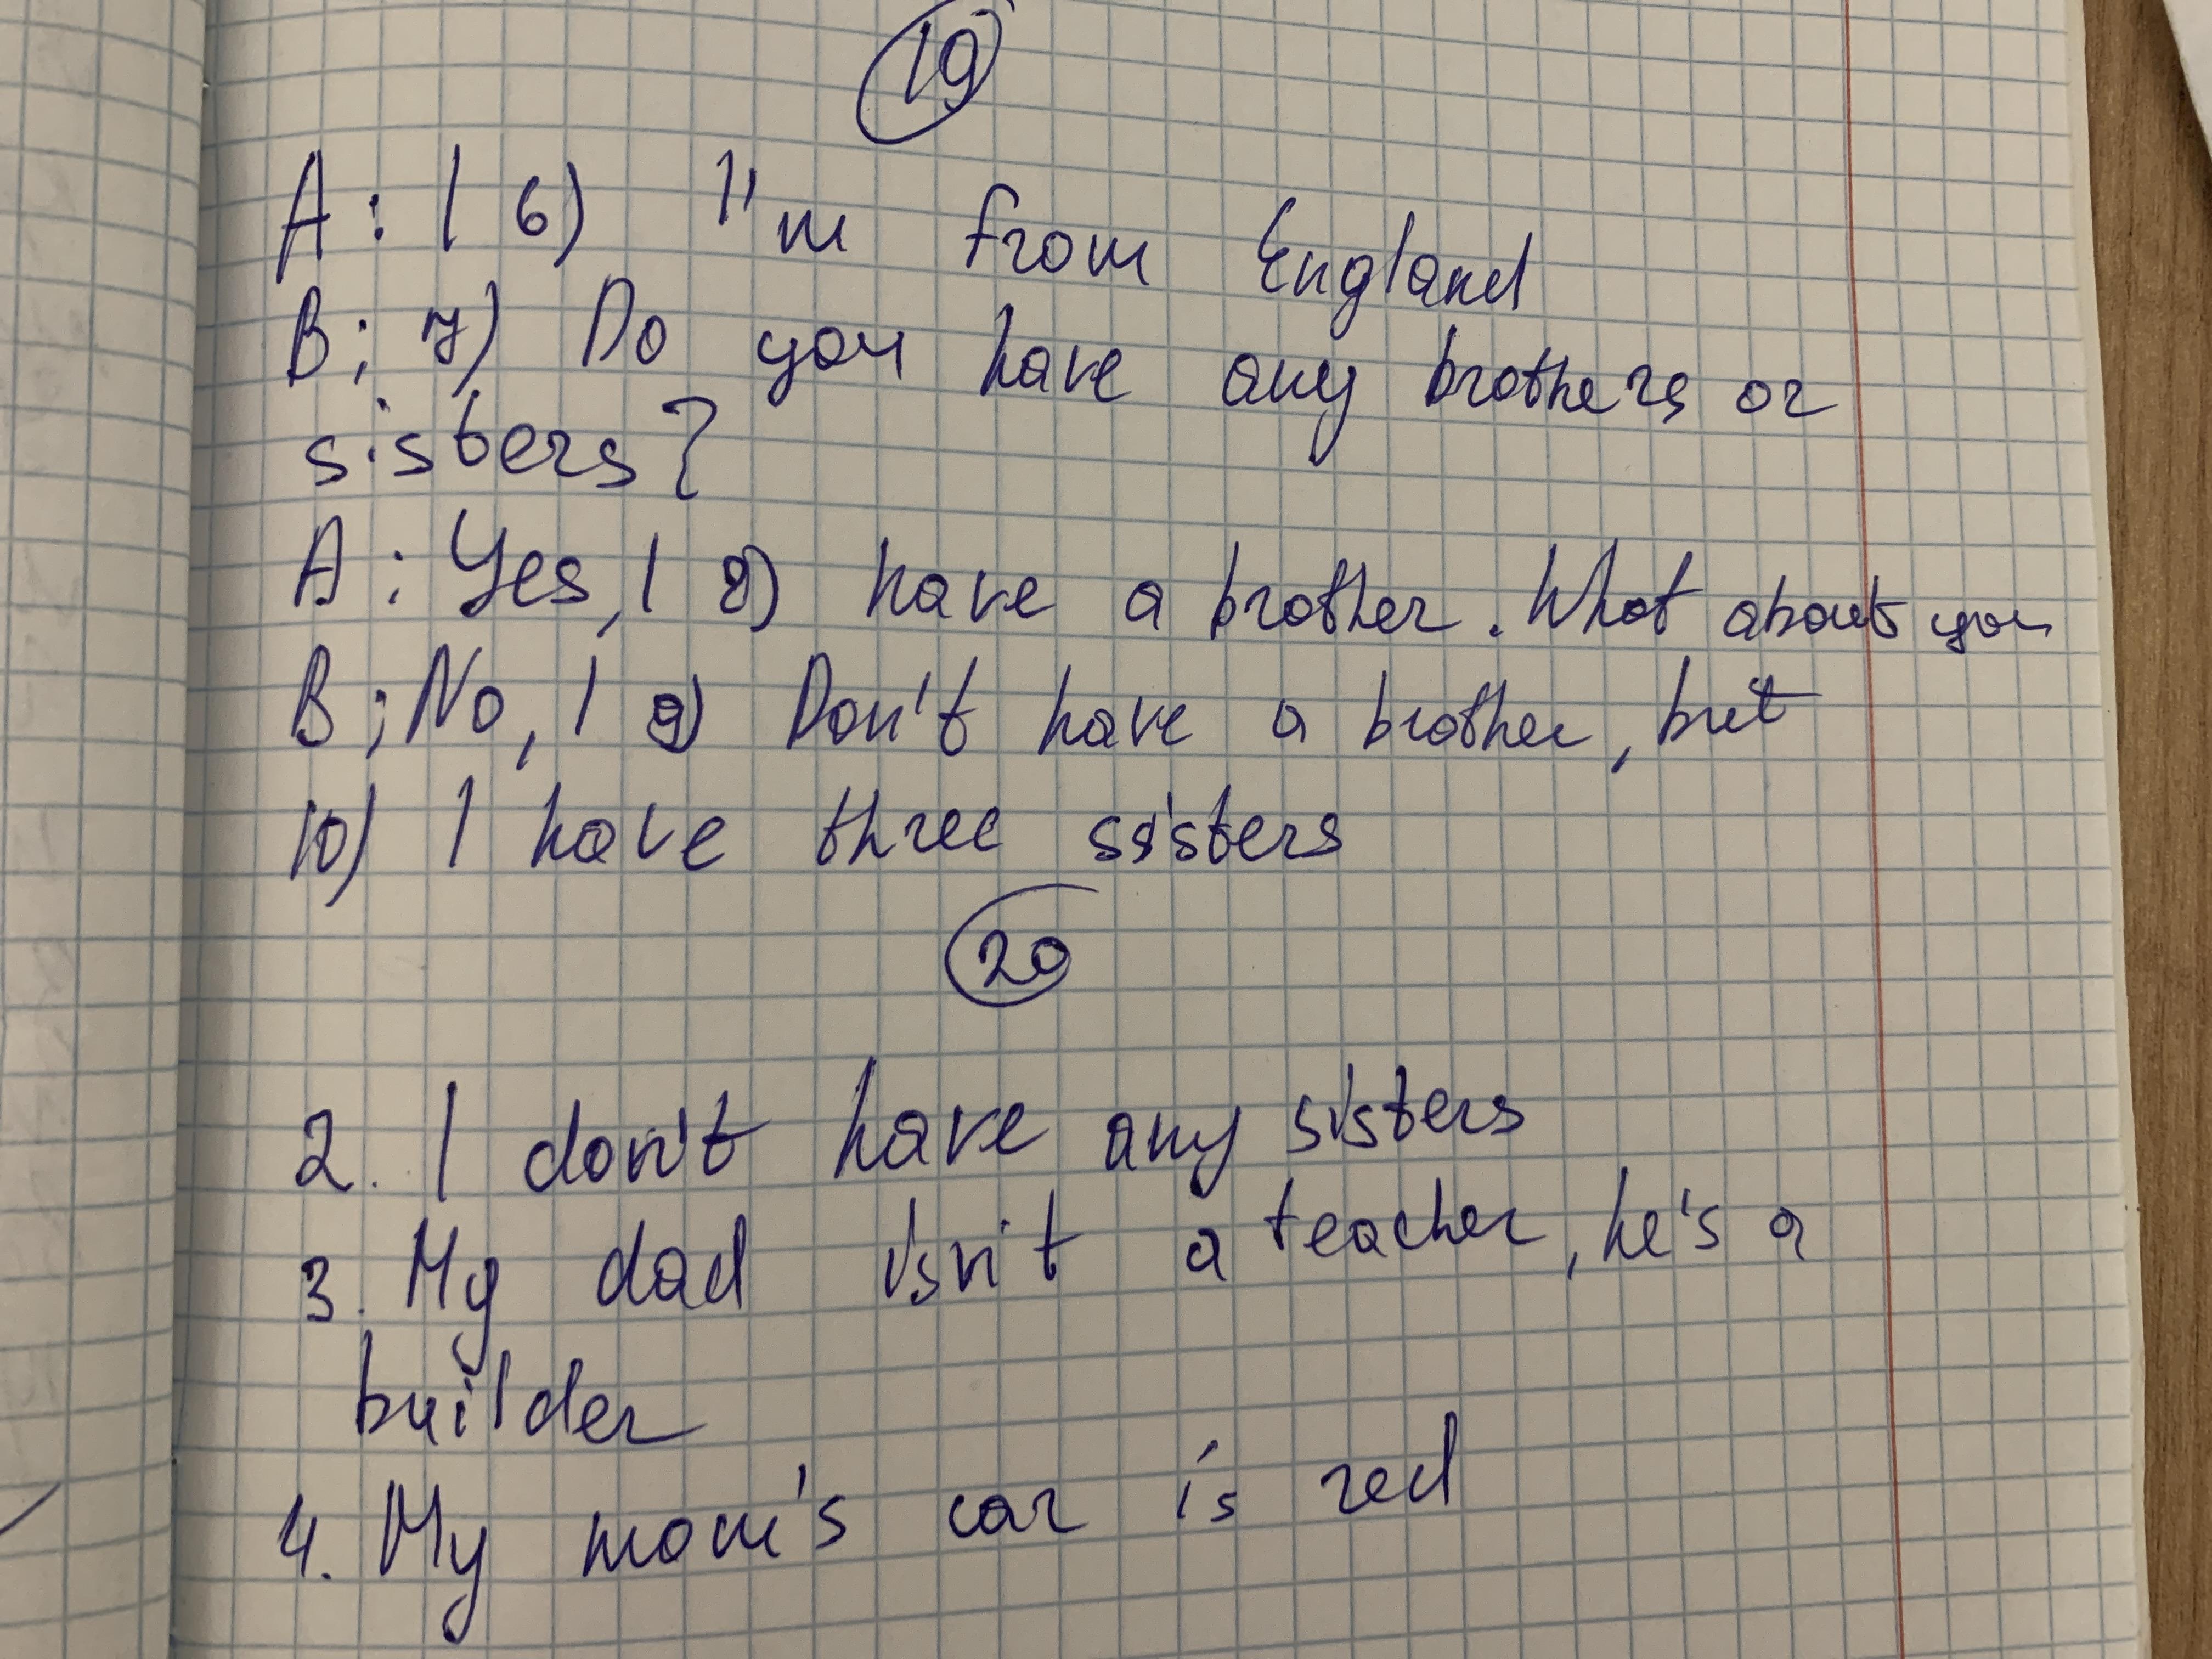 19
A: I 6) I'm from England
B; 7) Do you have any brothers or
sisters?
A: Yes, I 8) have a brother. What about you
B; No, I 9) Don't have a brother, but
10) I have three sisters
20
2. I don't have any sisters
3. My dad isn't a teacher, he's a
builder
4. My mom's car is red